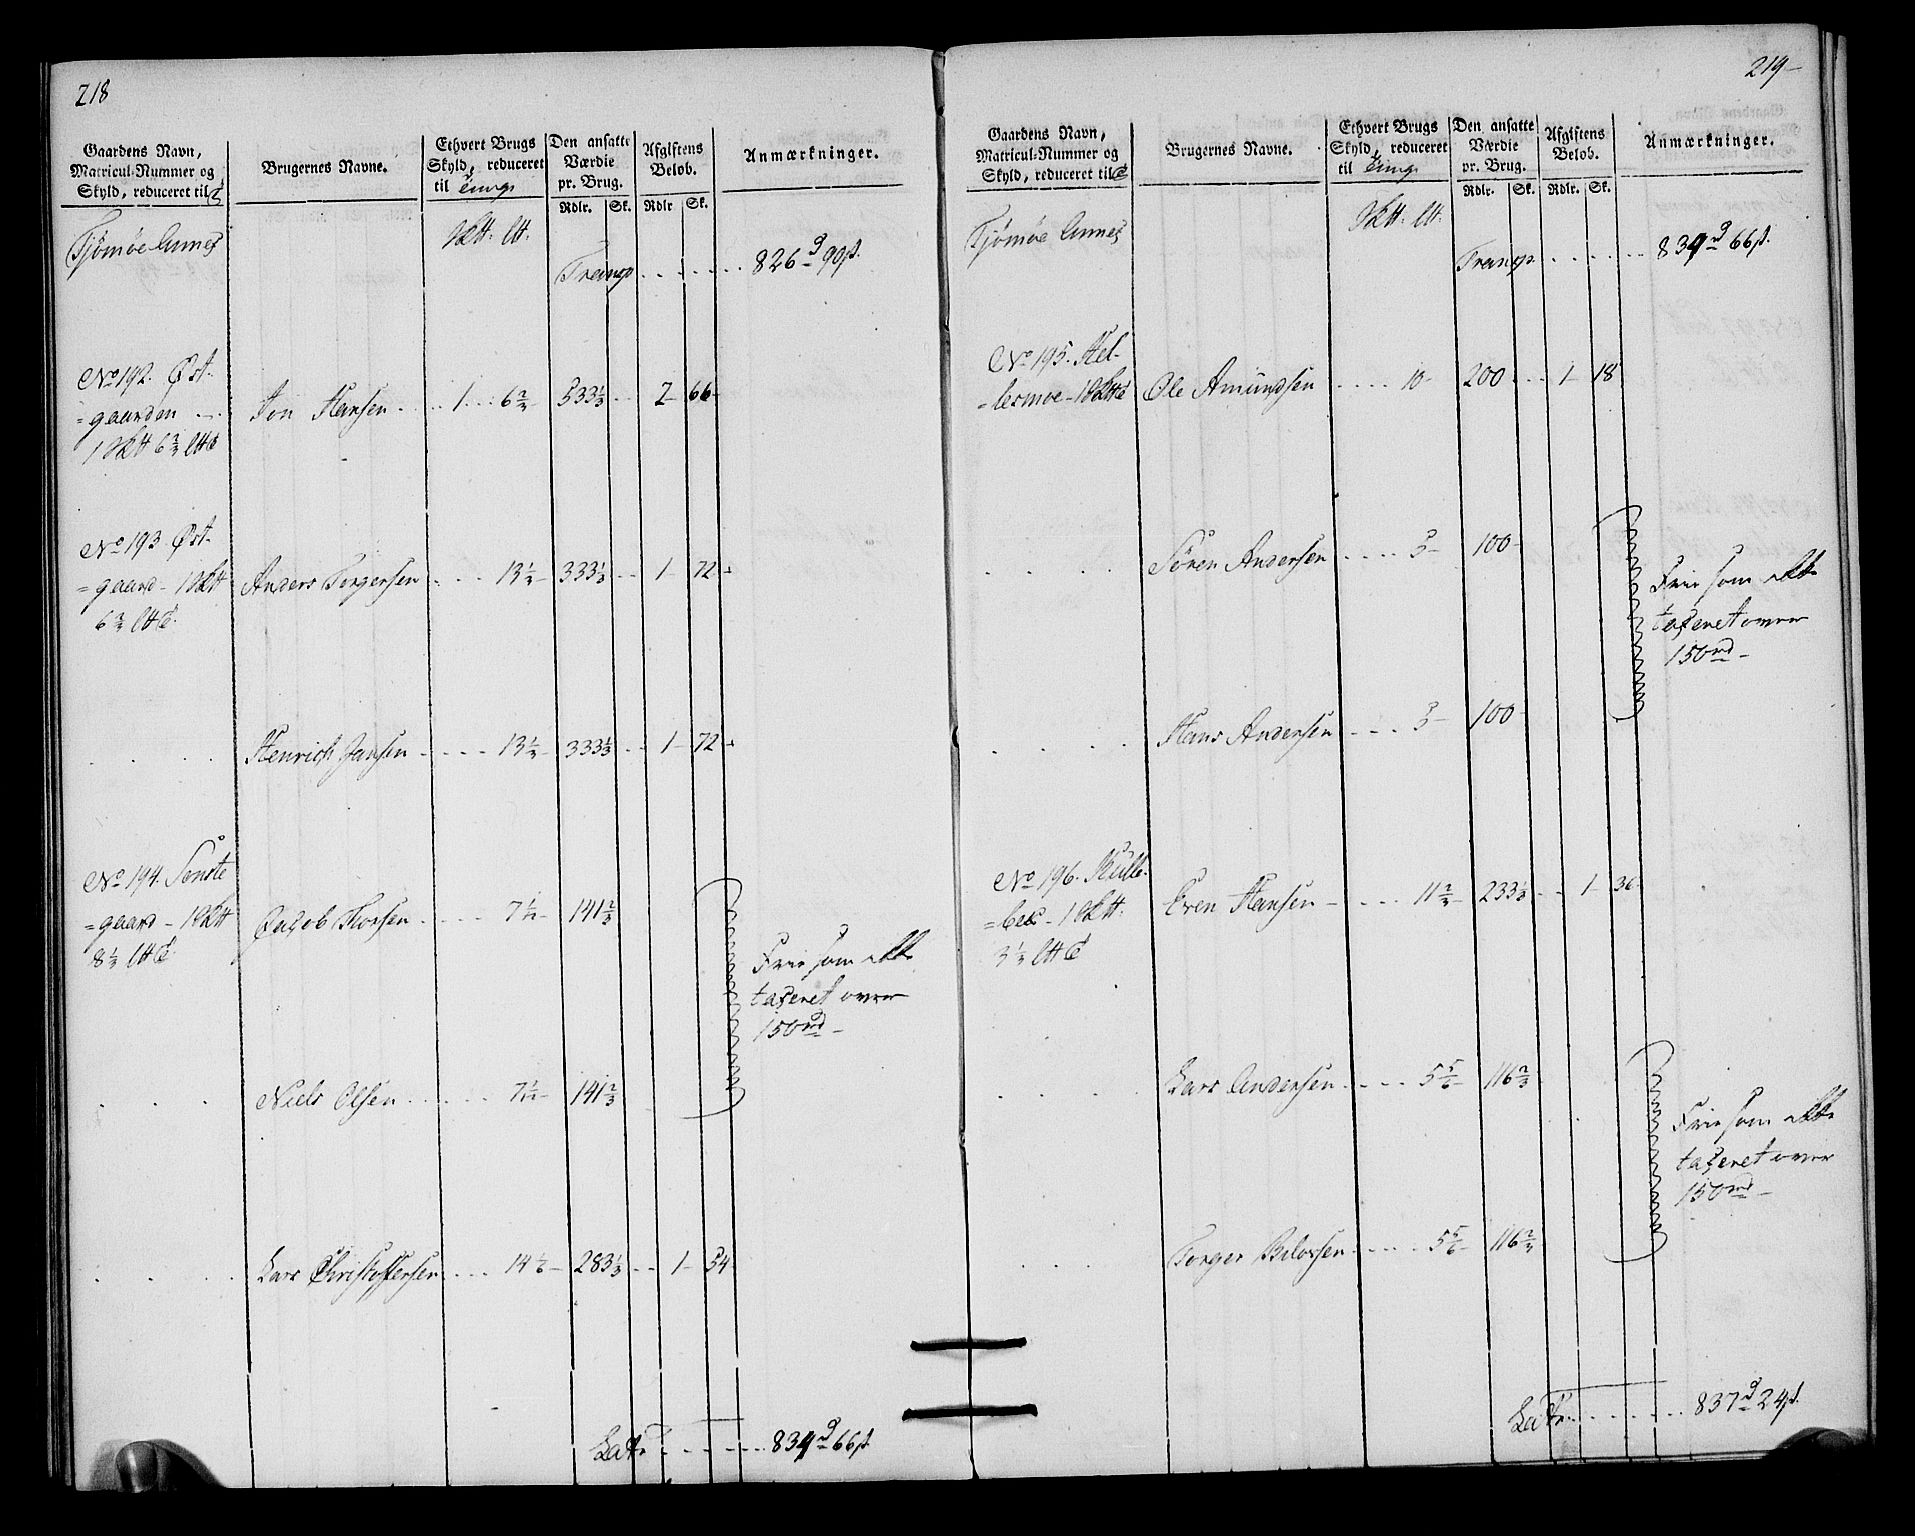 218
Gaardens Navn,
Matricul-Nummer og
Skyld, reduceret til
Brugernes Navne.
Ethvert Brugs
Skyld, reduceret
til Tunge
Den ansatte
Værdie
pr. Brug.
Rdlr. Sk.
Afgiftens
Beløb.
Rdlr Sk.
Anmærkninger.
Tjømøe Annex
Transp. . . . . . . 826 90 s.
No 192. Øst-
=gaarden
Jon Hansen . . . 1 . . 6 2/3 533 1/3 . . 2 66
No 193. Øst-
=gaard
Anders Torgersen . . . 13 1/3 333 1/3 . . 1 72
Henrich Jansen . . . . 13 1/3 333 1/3 . . 1 72
No 194. Sønste
=gaard
Jacob Thorsen . . . . 7 1/12 141 2/3
Frie som ikke
taxeret over
150 rd
Niels Olsen . . . . . 7 1/12 141 2/3
Lars Christoffersen . . . 14 1/6 283 1/3 . . 1 54
Late . . . . . . . 834 66 s.
219
Gaardens Navn,
Matricul-Nummer og
Skyld, reduceret til
Brugernes Navne.
Ethvert Brugs
Skyld, reduceret
til Tunge
Den ansatte
Værdie
pr. Brug.
Rdlr. Sk.
Afgiftens
Beløb.
Rdlr. Sk.
Anmærkninger.
Tjømøe Annex
Transp. . . . . . . 834 66 s.
No 195. Hel-
=lermoe
Ole Amundsen . . . . 10 200 . . 1 18
Sören Andersen . . . . 5 100
Frie som ikke
taxeret over
150 rd
Hans Andersen . . . 5 100
No 196. Kulle-
=bec
Even Hansen . . . . 11 2/3 233 1/3 . . 1 36
Lars Andersen . . . . 5 5/6 116 2/3
Frie som ikke
taxeret over
150 rd
Torger Nilssen . . . . 5 5/6 116 2/3
Late . . . . . . . 837 24 s.